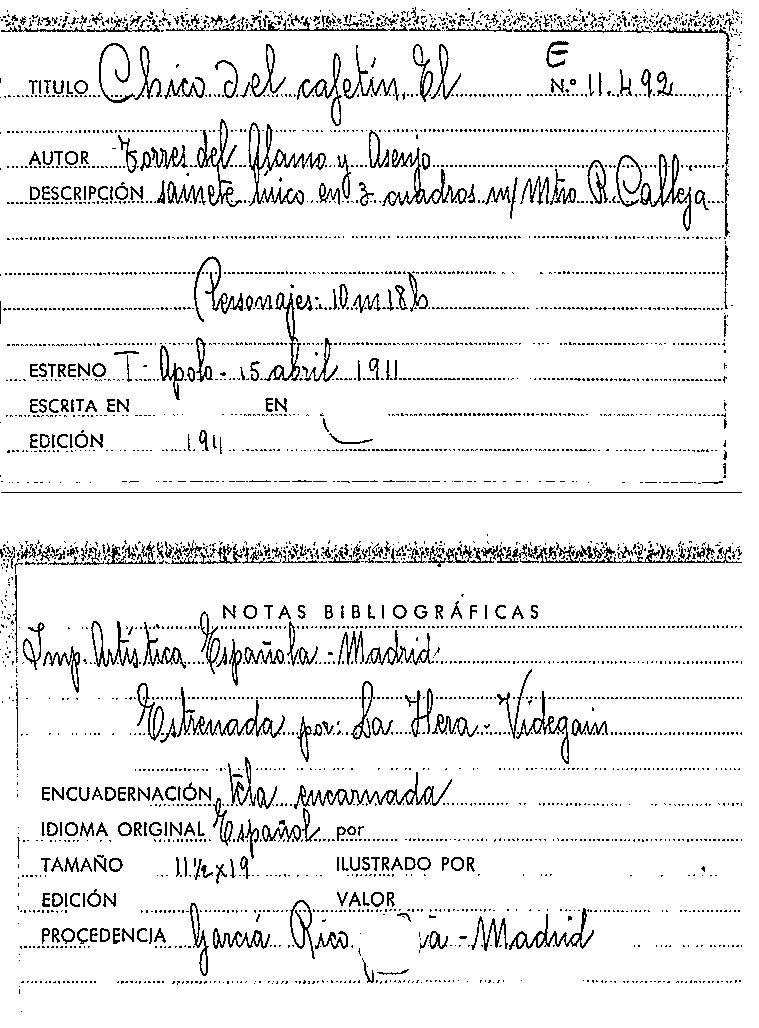 E
TITULO Chico del cafetín, El N.º 11.492
AUTOR Torres del Alamo y Asenjo
DESCRIPCIÓN sainete lírico en 3 cuadros m/ Mtro R. Calleja
Personajes: 10 m 18 h
ESTRENO T- Apolo - 15 abril 1911
ESCRITA EN EN
EDICIÓN 1911
NOTAS BIBLIOGRÁFICAS
Imp. Artística Española - Madrid
Estrenada por: La Hera - Videgain
ENCUADERNACIÓN tela encarnada
IDIOMA ORIGINAL Español por
TAMAÑO 11½ x 19 ILUSTRADO POR
EDICIÓN VALOR
PROCEDENCIA García Rico - Madrid